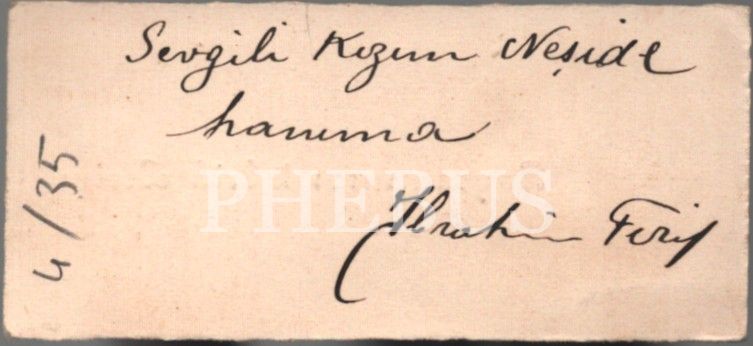 Sevgili Kızım Neşide
hanıma
İbrahim Ferif
4/35
PHEBUS